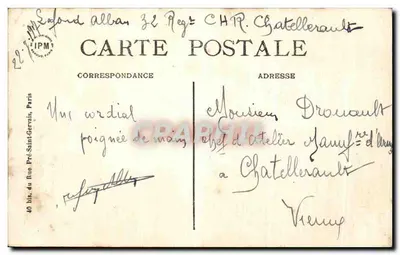 Alban 32 Regt CHR. Chatellerault
IPM
CARTE POSTALE
CORRESPONDANCE
ADRESSE
Un cordial
poignée de main
Monsieur Drouault
chef d'atelier Manufre d'armes
a Chatellerault
Vienne
40 bis, du Rue Pré-Saint-Gervais, Paris